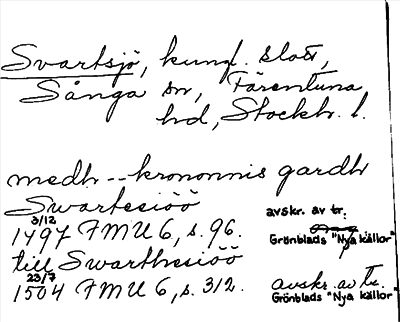 Svartsjö, kungl. slott,
Sånga sn, Färentuna
hd, Stockh. l.
medh -- krononnis gardh
Swartesiöö
3/12
1497 FMU 6, s. 96.
avskr. av tr.
Grönblads "Nya källor"
till Swarthesiöö
23/7
1504 FMU 6, s. 312.
avskr. av tr.
Grönblads "Nya källor"